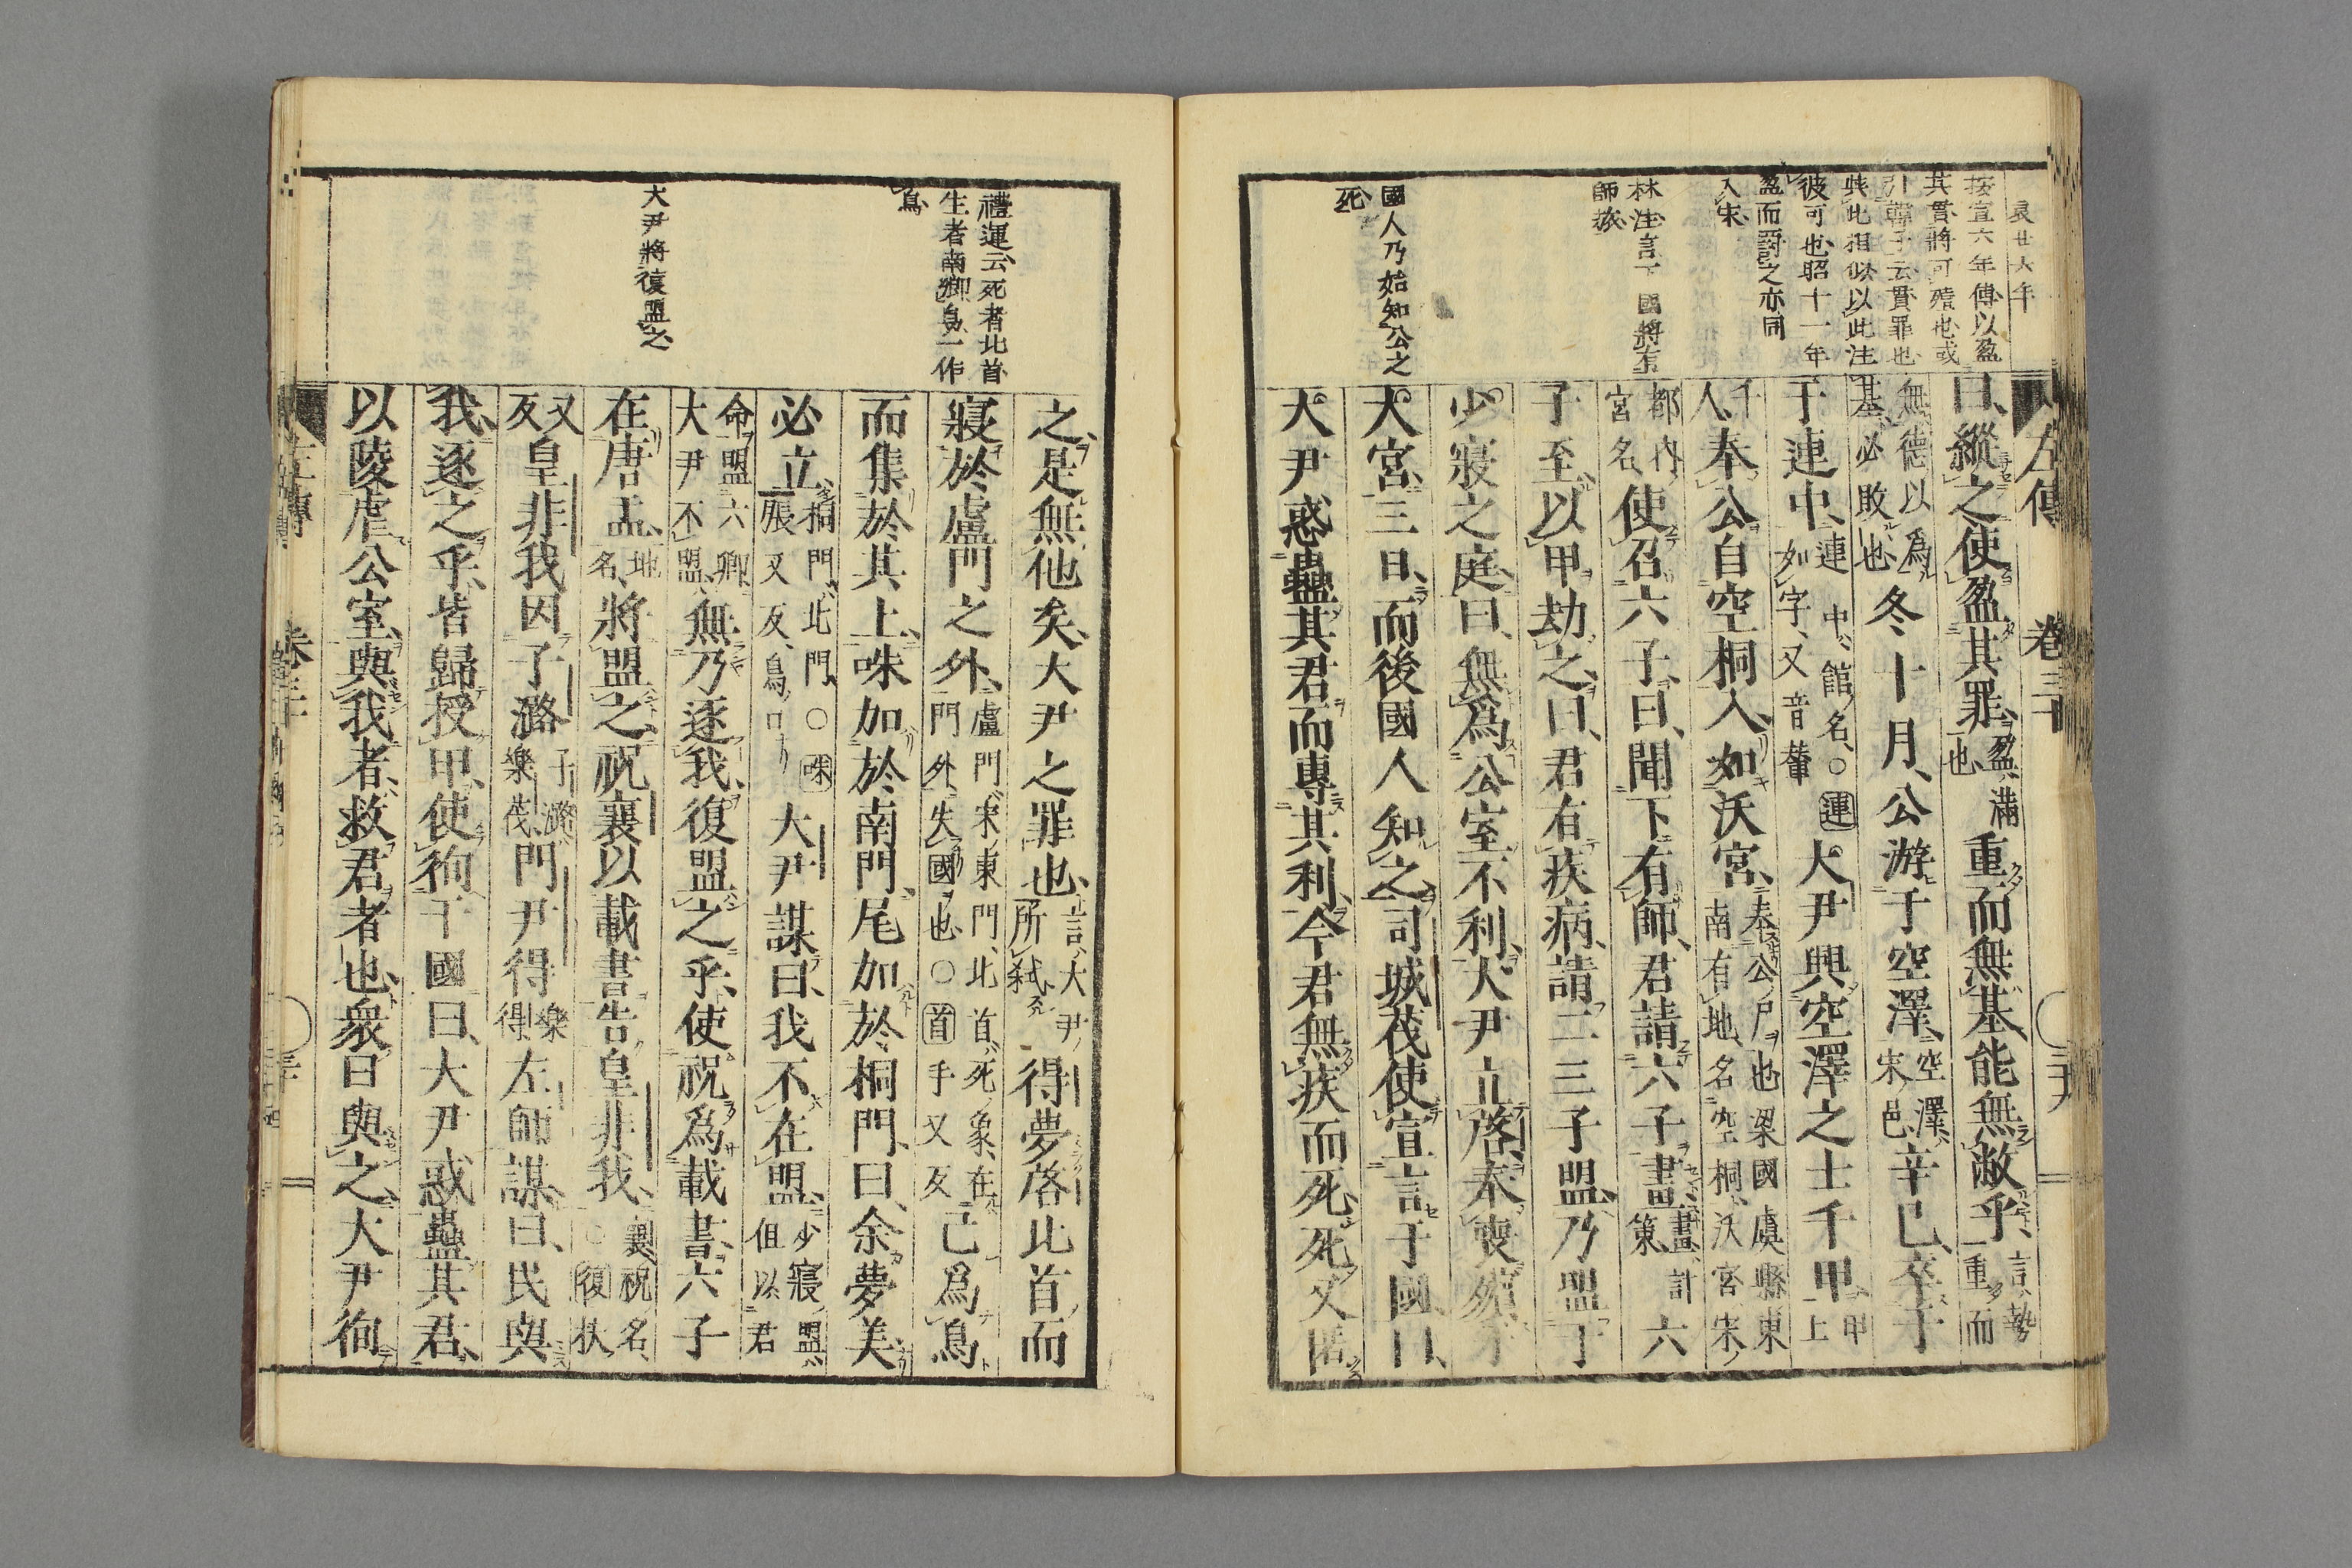 哀廿六年
按宣六年傳以盈
其貫將可殪也或
引韓子云貫罪也
與此相似以此注
彼可也昭十一年
盈而罰之亦同
入宋
林注言下國將有
師旅
國人乃始知公之
死
左傳 卷三十
曰縱之使盈其罪盈滿也重而無基能無敝乎言勢重而
無德以爲基必敗也冬十月公游于空澤空澤宋邑辛巳卒于
于連中連中館名○連如字又音輦大尹興空澤之士千甲甲上
千人奉公自空桐入如沃宮奉公尸也梁國虞縣東南有地名空桐沃宮宋
都內宮名使召六子曰聞下有師君請六子畫畫計策六
子至以甲劫之曰君有疾病請二三子盟乃盟于
少寢之庭曰無爲公室不利大尹立啓奉喪殯于
大宮三日而後國人知之司城茷使宣言于國曰
大尹惑蠱其君而專其利今君無疾而死死又匿
禮運云死者北首
生者南鄉烏一作
鳥
大尹將復盟之
之是無他矣大尹之罪也言大尹所弒得夢啓北首而
寢於盧門之外盧門宋東門北首死象在門外失國也○首手又反己爲鳥
而集於其上咮加於南門尾加於桐門曰余夢美
必立桐門北門○咮張又反鳥口大尹謀曰我不在盟少寢盟但以君
命盟六卿大尹不盟無乃逐我復盟之乎使祝爲載書六子
在唐盂地名將盟之祝襄以載書告皇非我襄祝名○復扶
又反皇非我因子潞子潞樂茷門尹得樂得左師謀曰民與
我逐之乎皆歸授甲使徇于國曰大尹惑蠱其君
以陵虐公室與我者救君者也衆曰與之大尹徇
左傳 卷三十